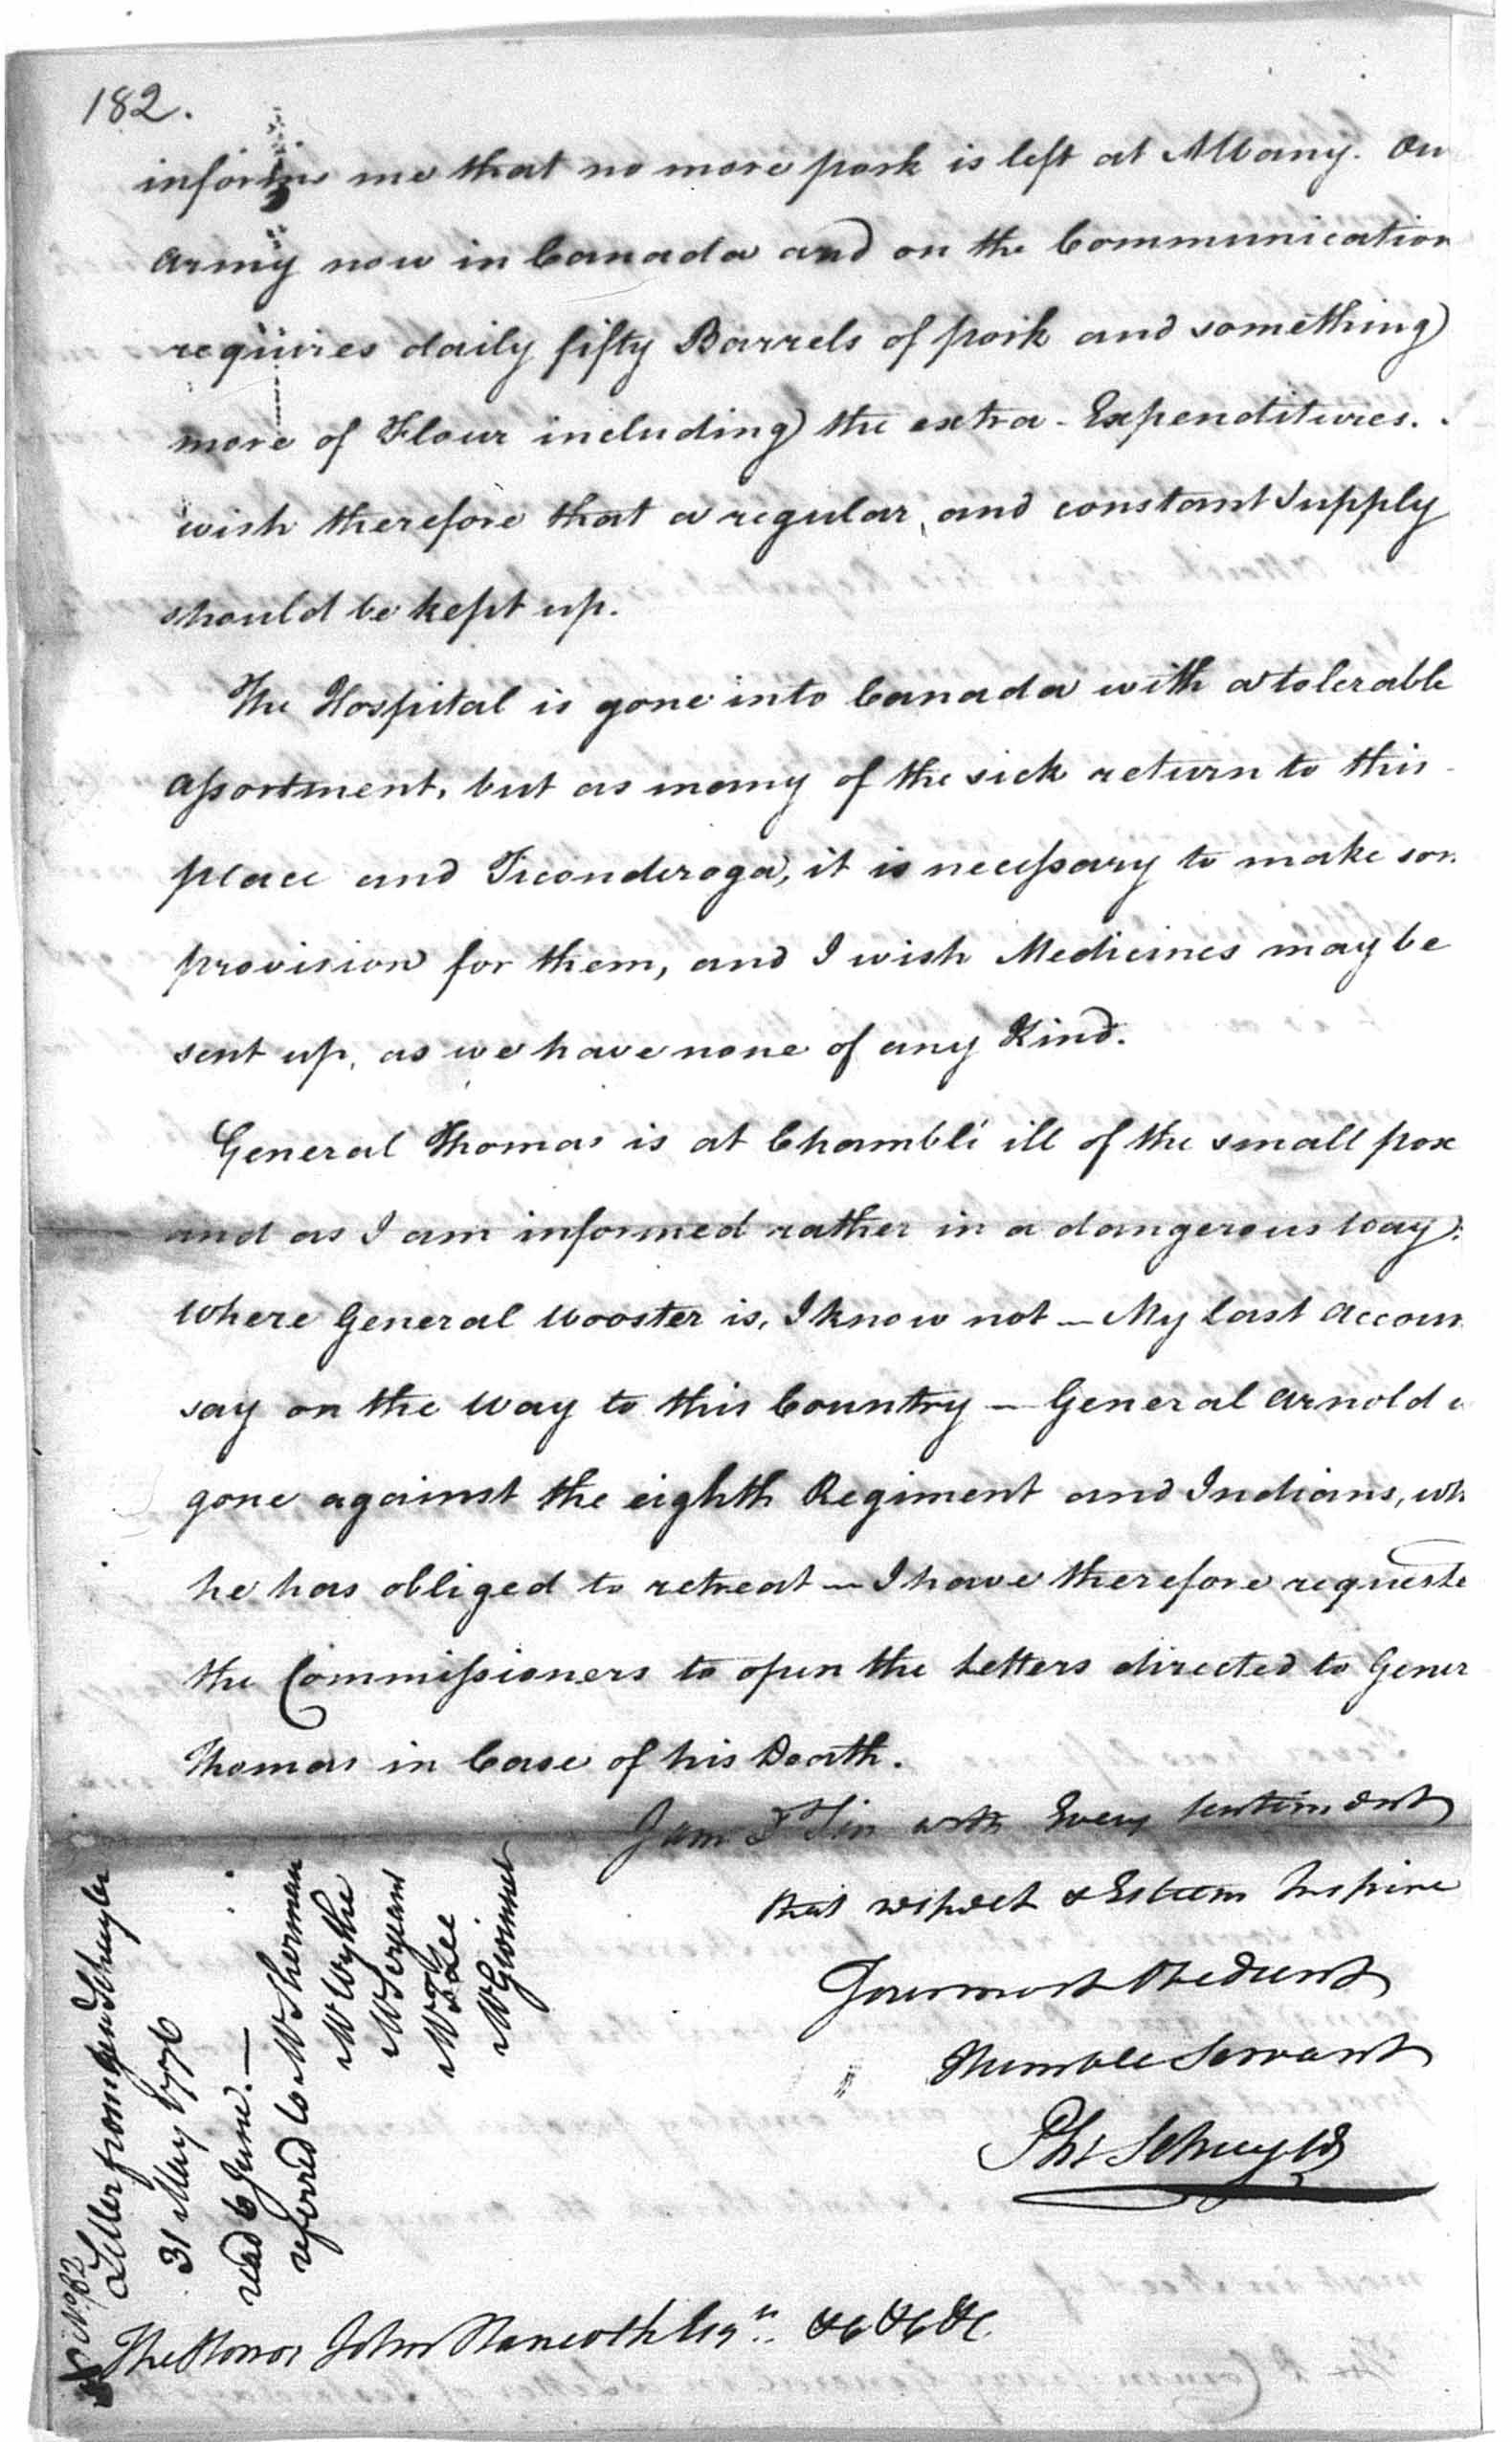 182.
informs me that no more pork is left at Albany. Ou
Army now in Canada and on the Communication
requires daily fifty Barrels of pork and something
more of Flour including the extra-Expenditures.
wish therefore that a regular, and constant Supply
should be kept up.
The Hospital is gone into Canada with a tolerable
assortment, but as many of the sick return to this
place and Ticonderoga, it is necessary to make som
provision for them, and I wish Medicines may be
sent up, as we have none of any Kind.
General Thomas is at Chambli ill of the small pox
and as I am informed rather in a dangerous way:
Where General Wooster is, I know not — My last Accoun
say on the Way to this Country — General Arnold
gone against the eighth Regiment and Indians, wh
he has obliged to retreat — I have therefore requeste
the Commissioners to open the Letters directed to Gener
Thomas in Case of his Death.
I am D Sir with Every Sentiment
that respect & Esteem Inspire
Your most Obedient
Humble Servant
Ph: Schuyler
The Honor John Hancock Esqr. &c &c &c.
No. 82
Letter from Gen Schuyler
31 May 1776
read 6 June. —
referred to Mr Sherman
Mr Wythe
Mr Sergeant
Mr F L Lee
Mr Gwinnet